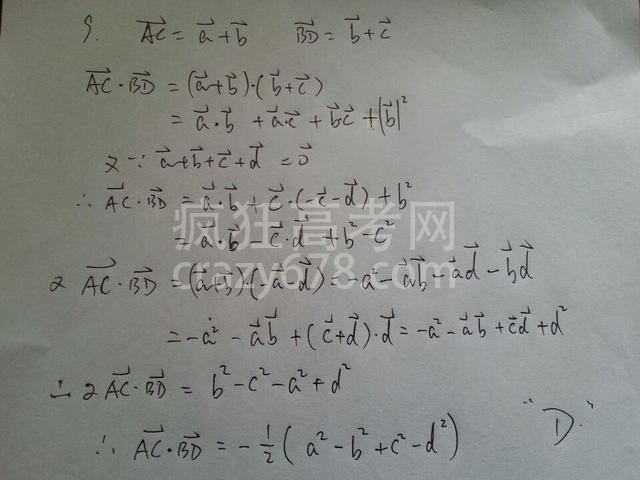 9. \vec{AC} = \vec{a} + \vec{b} \vec{BD} = \vec{b} + \vec{c}
\vec{AC} · \vec{BD} = (\vec{a} + \vec{b}) · (\vec{b} + \vec{c})
= \vec{a} · \vec{b} + \vec{a} \vec{c} + \vec{b} \vec{c} + |\vec{b}|²
又 ∵ \vec{a} + \vec{b} + \vec{c} + \vec{d} = \vec{0}
∴ \vec{AC} · \vec{BD} = \vec{a} · \vec{b} + \vec{c} · (-\vec{c} - \vec{d}) + b²
= \vec{a} · \vec{b} - \vec{c} · \vec{d} + b² - c²
疯狂高考网
crazy678.com
又 \vec{AC} · \vec{BD} = (\vec{a} + \vec{b}) · (-\vec{a} - \vec{d}) = -a² - \vec{a} \vec{b} - \vec{a} \vec{d} - \vec{b} \vec{d}
= -a² - \vec{a} \vec{b} + (\vec{c} + \vec{d}) · \vec{d} = -a² - \vec{a} \vec{b} + \vec{c} \vec{d} + d²
∴ 2 \vec{AC} · \vec{BD} = b² - c² - a² + d²
∴ \vec{AC} · \vec{BD} = -\frac{1}{2} (a² - b² + c² - d²) "D."